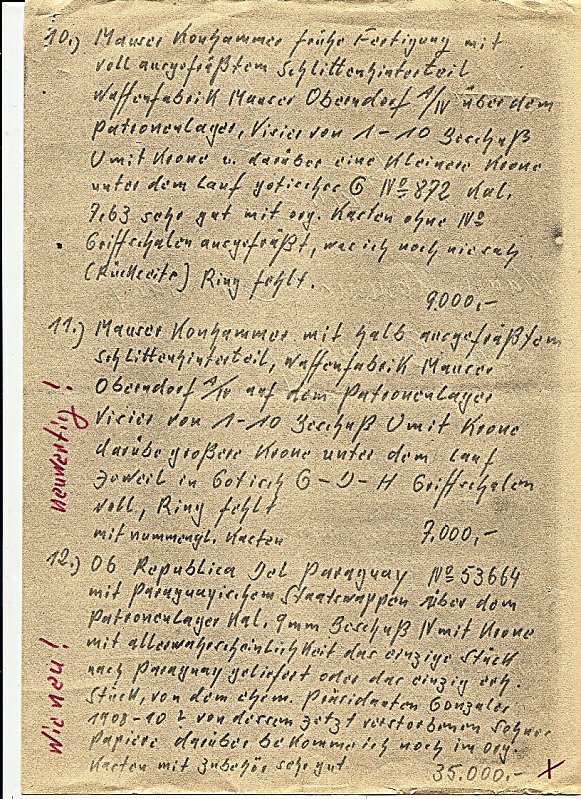 10.) Mauser Konhammer frühe Fertigung mit
voll ausgefräßtem Schlittenhinterteil
Waffenfabrik Mauser Oberndorf A/N über dem
Patronenlager, Visier von 1-10 Beschuß
U mit Krone u. darüber eine kleinere Krone
unter dem Lauf gotisches G Nº 872 Kal.
7,63 sehr gut mit org. Kasten ohne Nº
Griffschalen ausgefräßt, was ich noch nie sah
(Rückseite) Ring fehlt.
9.000,-
11.) Mauser Konhammer mit halb ausgefräßtem
Schlittenhinterteil, Waffenfabrik Mauser
Oberndorf A/N auf dem Patronenlager
Visier von 1-10 Beschuß U mit Krone
darübe große Krone unter dem Lauf
jeweil in Gotisch G-J-H Griffschalen
voll, Ring fehlt
mit nummerngl. Kasten 7.000,-
neuwertig!
12.) 06 Republica Del Paraguay Nº 53664
mit Paraguayischem Staatswappen über dem
Patronenlager Kal. 9mm Beschuß N mit Krone
mit allerwahrscheinlichkeit das einzige Stück
nach Paraguay geliefert oder das einzig erh.
Stück, von dem ehem. Präsidanten Gonzales
1908-10? von dessem jetzt verstorbenen Sohne
Papiere darüber bekomme ich noch im org.
Kasten mit Zubehör sehr gut
35.000,- X
Wie neu!